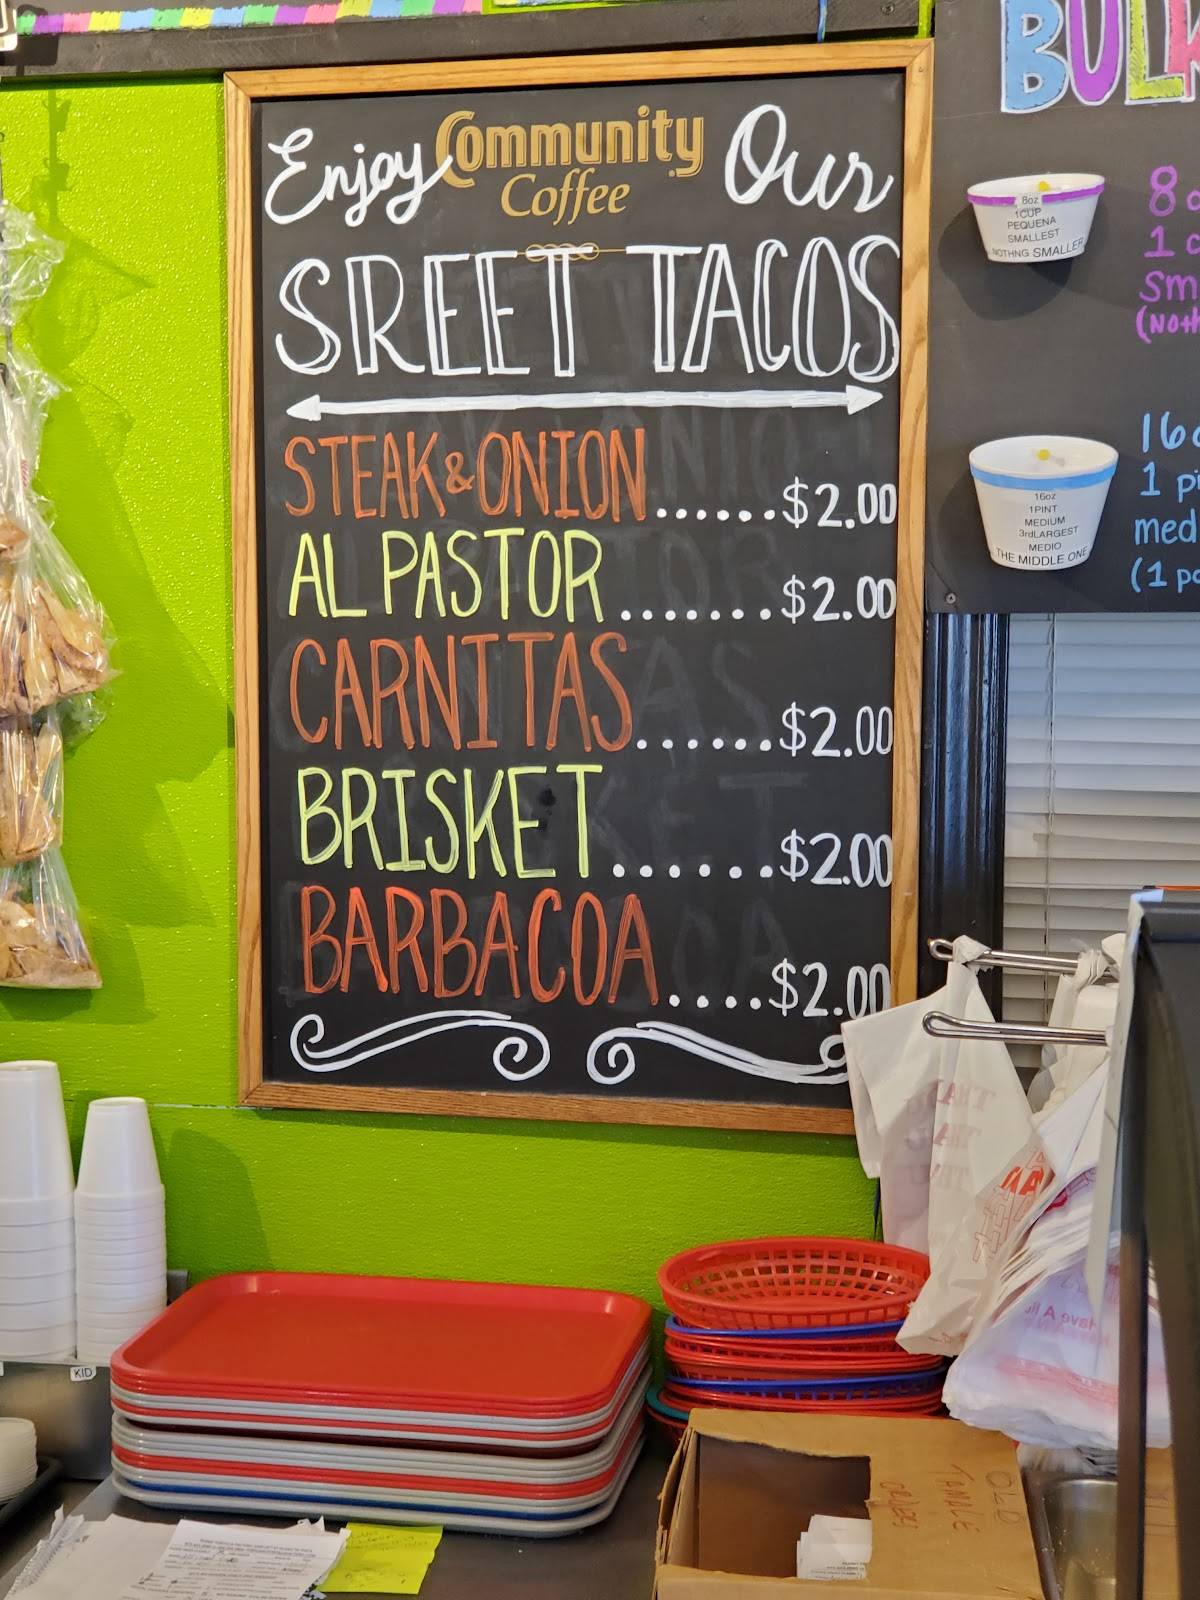 Enjoy Community Coffee Our
SREET TACOS
STEAK & ONION......$2.00
AL PASTOR.......$2.00
CARNITAS......$2.00
BRISKET......$2.00
BARBACOA....$2.00
BULK
8oz
1CUP
PEQUENA
SMALLEST
NOTHNG SMALLER
8
1
Sm
16
1
med
(1
16oz
1PINT
MEDIUM
3rdLARGEST
MEDIO
THE MIDDLE ONE
KID
OLD
TAMALE
ORDERS
Have A